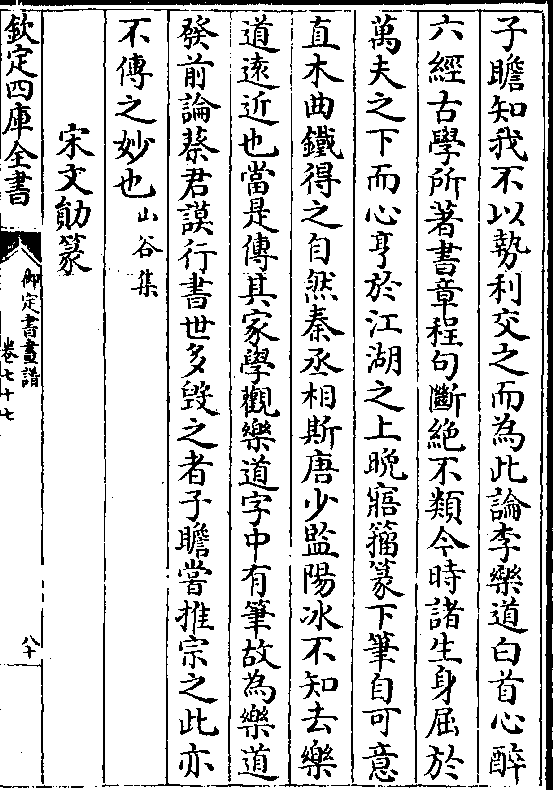 子瞻知我不以勢利交之而為此論李樂道白首心醉
六經古學所著書章程句斷絶不類今時諸生身屈於
萬夫之下而心亨於江湖之上晚寤籀篆下筆自可意
直木曲鐵得之自然秦丞相斯唐少監陽冰不知去樂
道逺近也當是傳其家學觀樂道字中有筆故為樂道
發前論蔡君謨行書世多毀之者子瞻嘗推宗之此亦
不傳之妙也山谷集
宋文勛篆
欽定四庫全書
御定書畫譜
卷七十七
八十